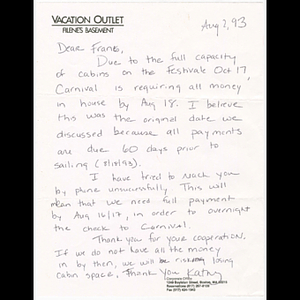 VACATION OUTLET
FILENE'S BASEMENT
Aug 2, 93
Dear Frank,
Due to the full capacity
of cabins on the Festivale Oct 17,
Carnival is requiring all money
in house by Aug 18. I believe
this was the original date we
discussed because all payments
are due 60 days prior to
sailing (8/18/93).
I have tried to reach you
by phone unsuccessfully. This will
mean that we need full payment
by Aug 16/17, in order to overnight
the check to Carnival.
Thank you for your cooperation.
If we do not have all the money
in by then, we will be risking losing
cabin space. Thank you Kathy
Corporate Office
Boylston Street, Boston, MA
Reservations
Fax